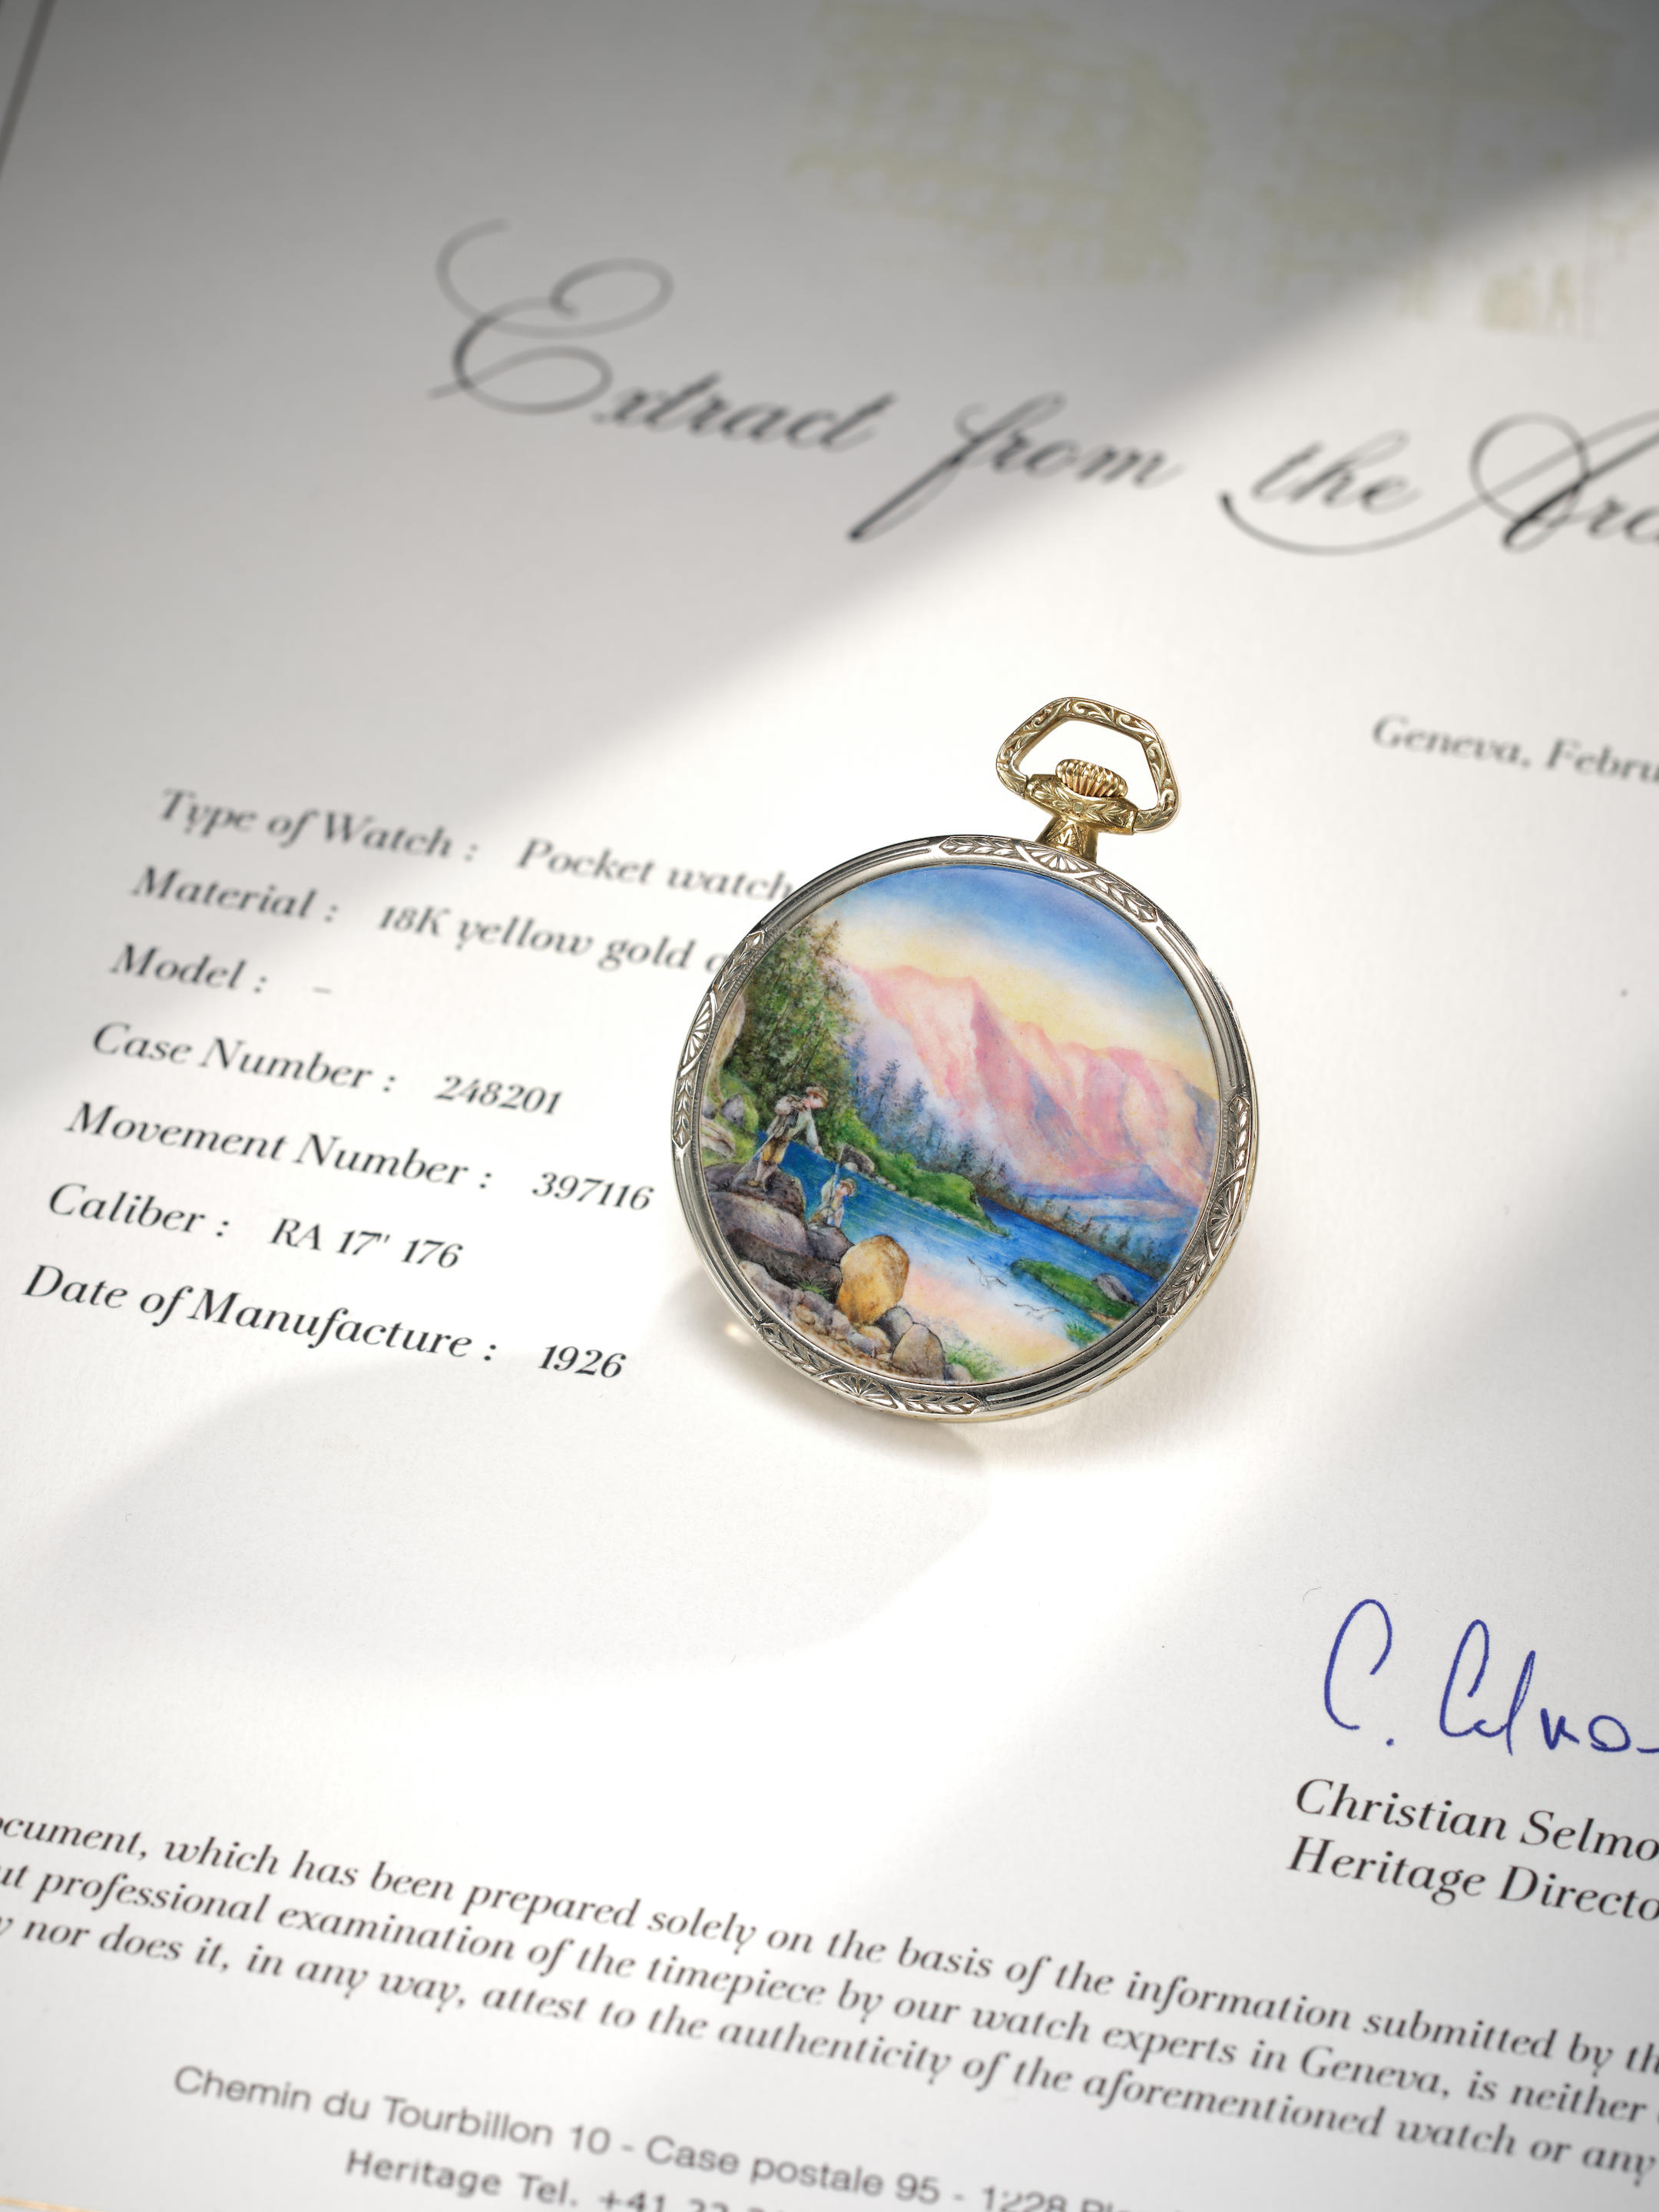 Extract from the
Geneva,
Type of Watch : Pocket watch
Material : 18K yellow gold
Model : –
Case Number : 248201
Movement Number : 397116
Caliber : RA 17''' 176
Date of Manufacture : 1926
C.
Christian
Heritage
which has been prepared solely on the basis of the information submitted by
professional examination of the timepiece by our watch experts in Geneva, is neither
nor does it, in any way, attest to the authenticity of the aforementioned watch or any
Chemin du Tourbillon 10 - Case postale 95 - 1228
Heritage Tel. +41 22